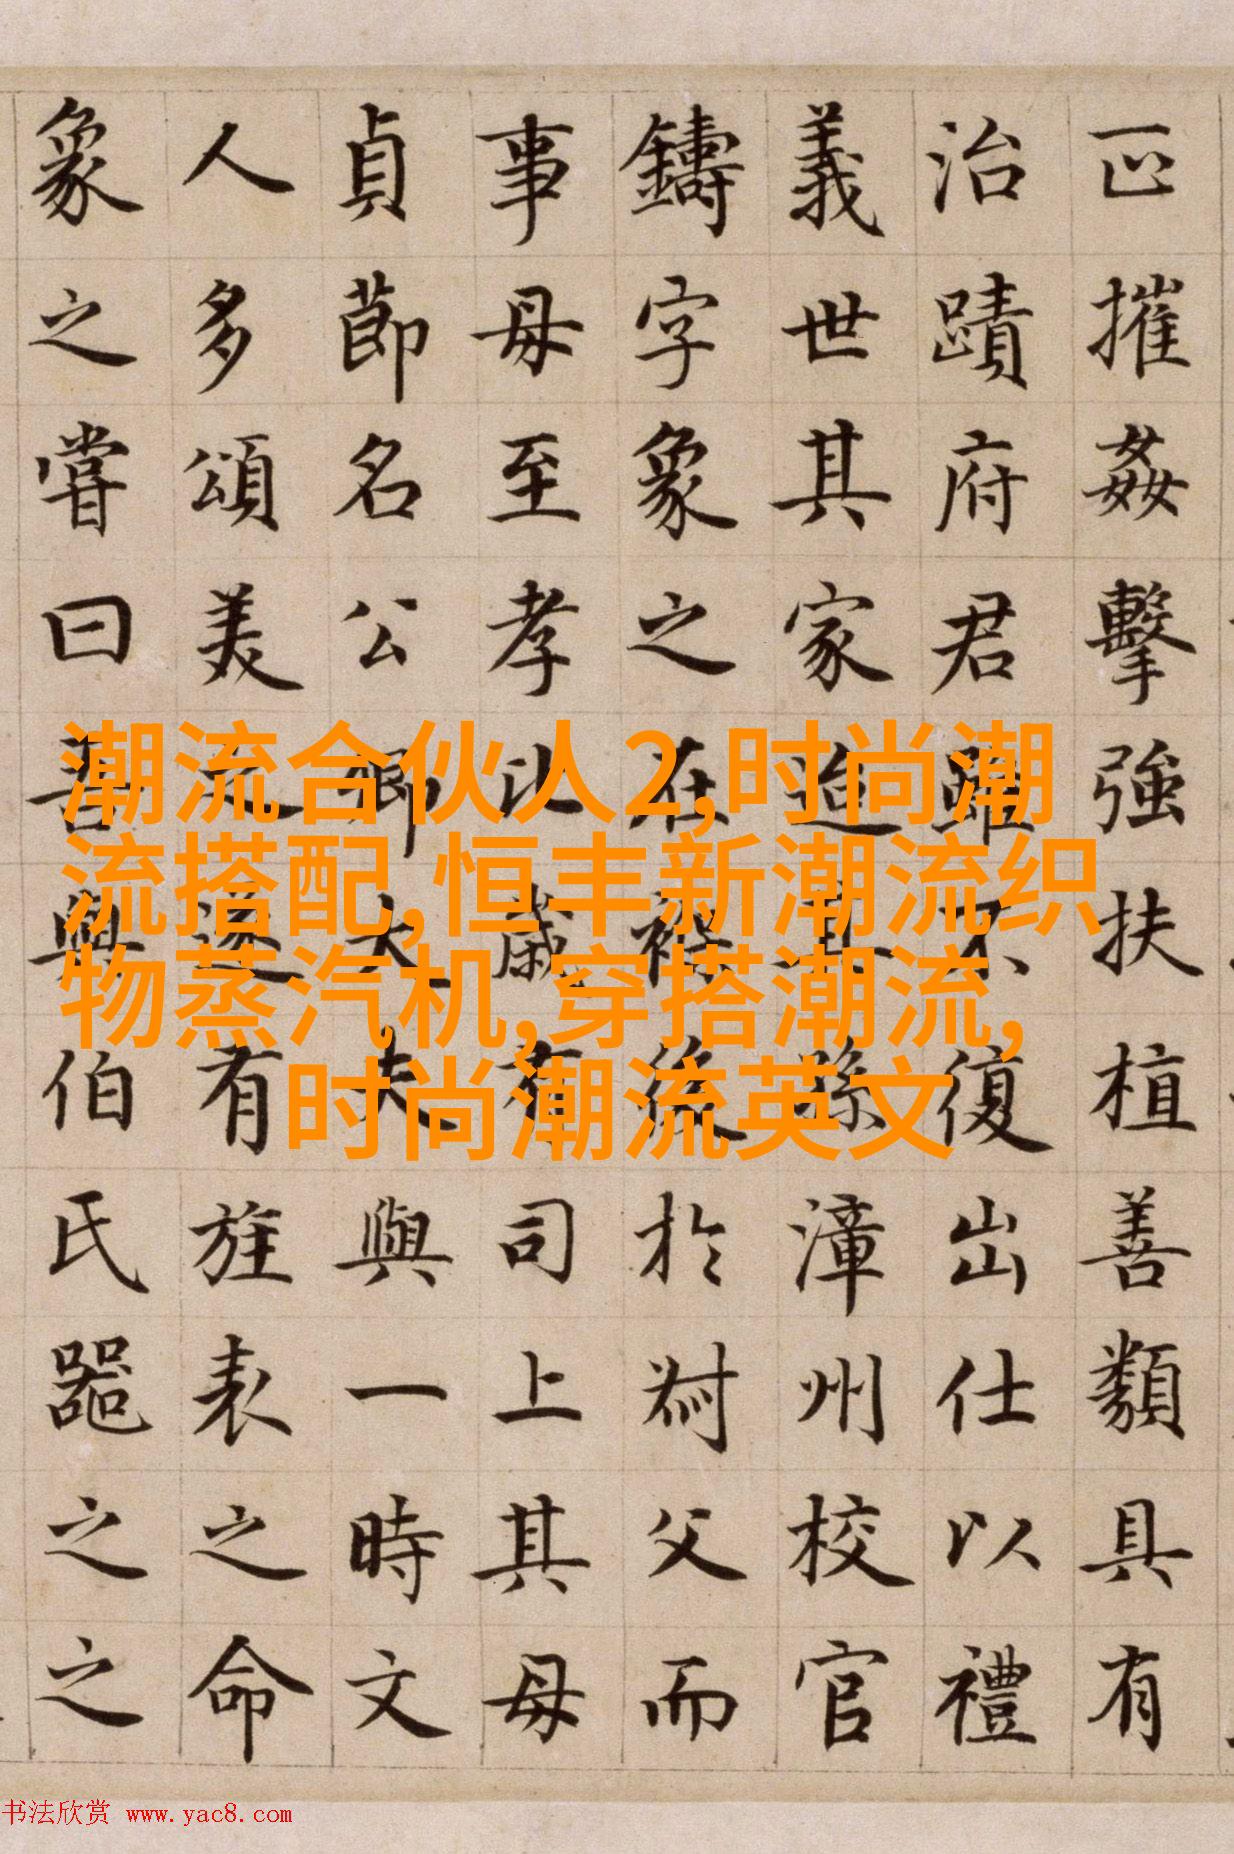 摧姦擊強扶植善類具有
治蹟府君雖不復出仕以禮
義世其家迨其孫漳州校官
鑄字象之在後於父而
事母至孝比歲有司上其母
貞節名公卿大夫與一時文
人多頌美之遂有旌表之命
象之嘗曰吾與伯氏器之之
潮流合伙人2,时尚潮
流搭配,恒丰新潮流织
物蒸汽机,穿搭潮流,
时尚潮流英文
书法欣赏 www.yac8.com